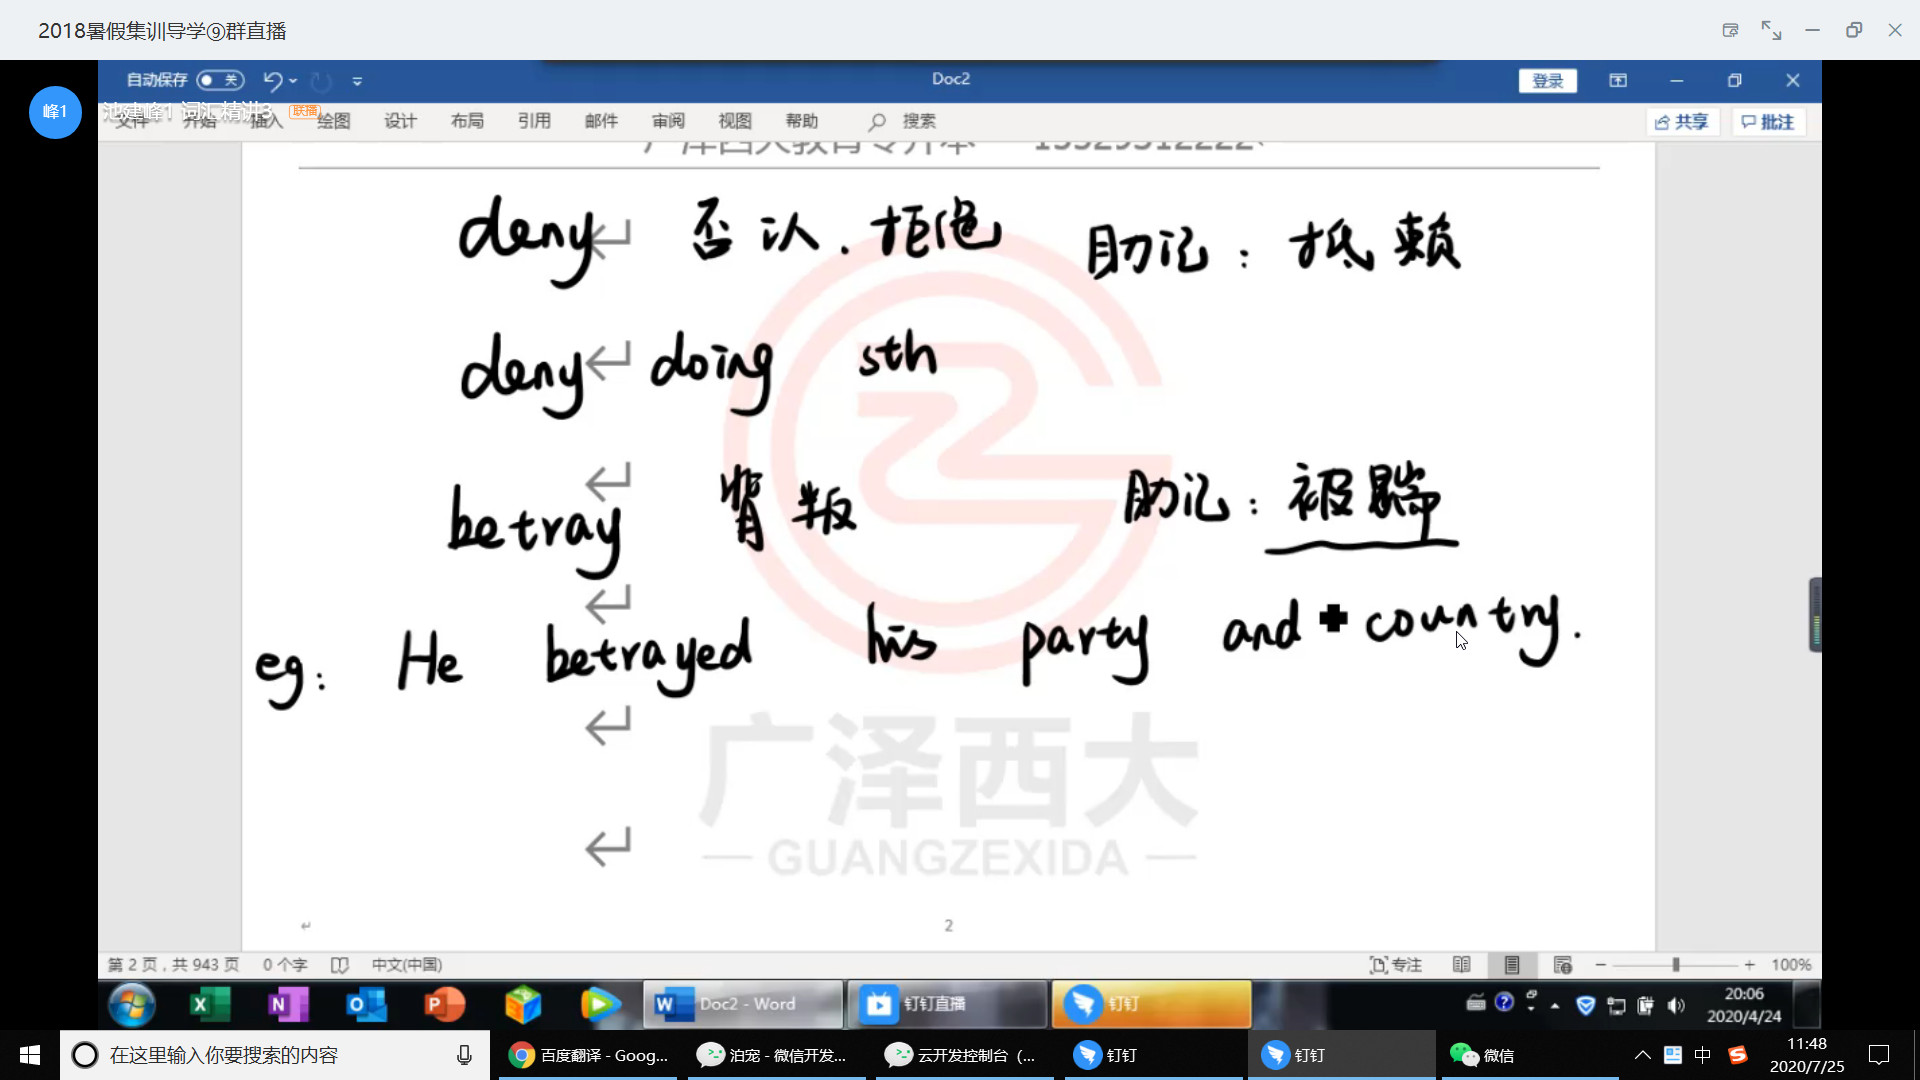 2018暑假集训导学⑨群直播
自动保存 关 Doc2 登录
峰1 池建峰1 词汇精讲3 联播
文件 开始 插入 绘图 设计 布局 引用 邮件 审阅 视图 帮助 搜索 共享 批注
广泽西大教育专升本
deny 否认.拒绝 助记:抵赖
deny doing sth
betray 背叛 助记:被踹
eg: He betrayed his party and country.
广泽西大
— GUANGZEXIDA —
2
第 2 页,共 943 页 0 个字 中文(中国) 专注 100%
Doc2 - Word 钉钉直播 钉钉 20:06
2020/4/24
在这里输入你要搜索的内容 百度翻译 - Goog... 泊宠 - 微信开发... 云开发控制台 (... 钉钉 钉钉 微信 中 11:48
2020/7/25